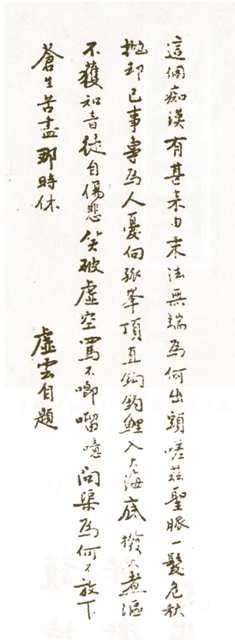 這個痴漢有甚來由末法無端為何出頭嗟茲聖眼一髮危秋
拋却己事專為人憂向孤峯頂直鈎釣鯉入大海底撥火煮漚
不獲知音徒自傷悲笑破虛空罵不唧𠺕噫問渠為何不放下
蒼生苦盡那時休
虛雲自題